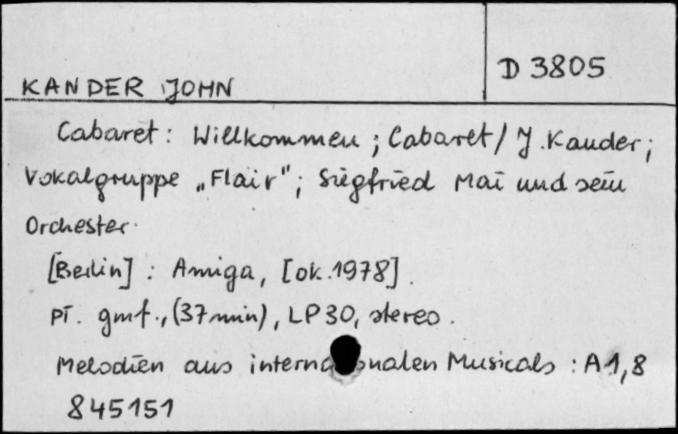 D 3805
KANDER JOHN
Cabaret: Willkommen; Cabaret/ J. Kander;
Vokalgruppe „Flair"; Siegfried Mai und sein
Orchester.
[Berlin]: Amiga, [ok. 1978].
Pł. gmf., (37 min), LP 30, stereo.
Melodien aus internationalen Musicals: A1,8
845151